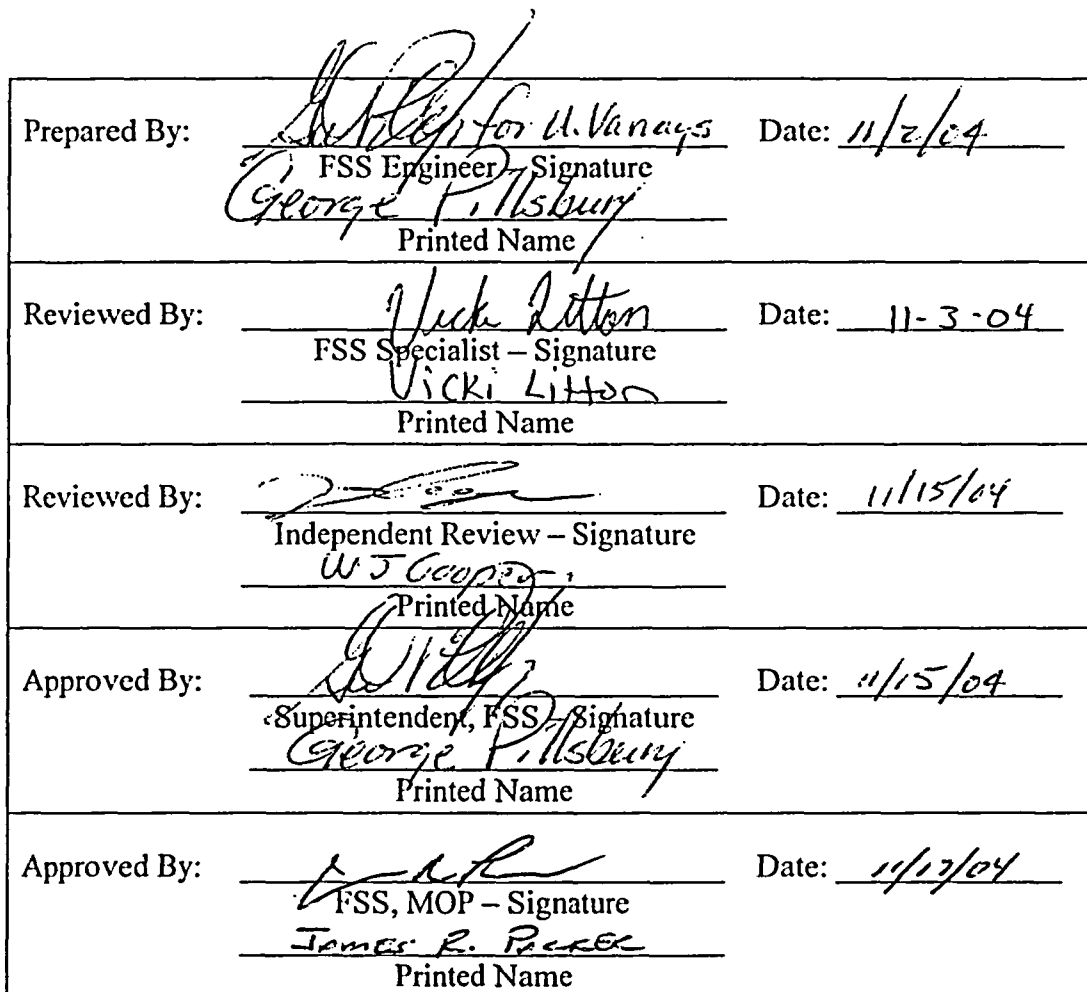 Prepared By: for U. Vanags Date: 11/2/04
FSS Engineer – Signature
George Pillsbury
Printed Name
Reviewed By: Vicki Litton Date: 11-3-04
FSS Specialist – Signature
Vicki Litton
Printed Name
Reviewed By: Date: 11/15/04
Independent Review – Signature
W J Cooper
Printed Name
Approved By: Date: 11/15/04
Superintendent, FSS – Signature
George Pillsbury
Printed Name
Approved By: Date: 11/17/04
FSS, MOP – Signature
James R. Packer
Printed Name